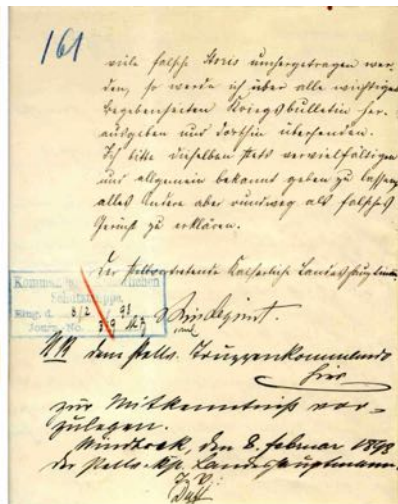 161
viele falsche Storis umhergetragen wer-
den, so werde ich über alle wichtigen
Begebenheiten Kriegsbulletin her-
ausgeben und dorthin übersenden.
Ich bitte dieselben stets vervielfältigen
und allgemein bekannt geben zu lassen,
alles Andere aber rundweg als falsches
Gerücht zu erklären.
Der stellvertretende Kaiserliche Landeshauptmann
Schutztruppe.
Eing. d. 8/2 98
Journ. No.
Lindequist.
dem stellv. Truppenkommando
hier
zur Mitkenntniß vor-
zulegen.
Windhoek, den 8. Februar 1898
Der stellv. Ksl. Landeshauptmann.